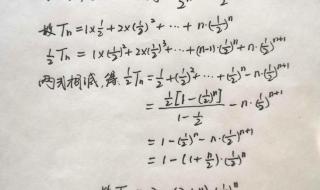 故Tn = 1×1/2 + 2×(1/2)² + ⋯ + n·(1/2)ⁿ
1/2 Tn = 1×(1/2)² + 2×(1/2)³ + ⋯ + (n-1)·(1/2)ⁿ + n·(1/2)ⁿ⁺¹
两式相减,得: 1/2 Tn = 1/2 + (1/2)² + ⋯ + (1/2)ⁿ - n·(1/2)ⁿ⁺¹
= 1/2[1-(1/2)ⁿ] / (1-1/2) - n·(1/2)ⁿ⁺¹
= 1-(1/2)ⁿ - n·(1/2)ⁿ⁺¹
= 1-(1+n/2)·(1/2)ⁿ